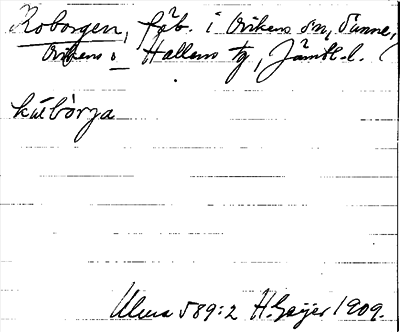 Koborgen, fäb. i Ovikens sn, Sunne,
Ovikens o Hallens tg, Jämtl. l.
kúbòrja
Ulma 589:2 H. Geijer 1909.